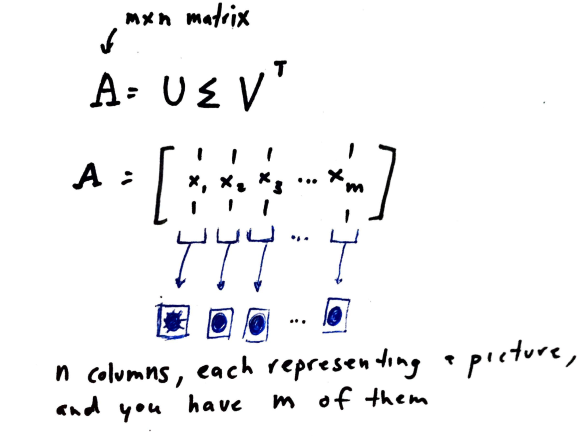 mxn matrix
A = U Σ V^T
A = [ x₁ x₂ x₃ ... xₘ ]
...
...
n columns, each representing a picture,
and you have m of them